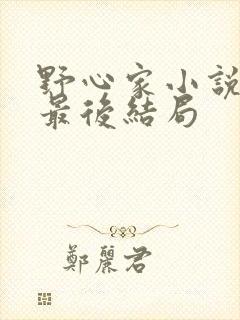 野心家小說
最後結局
鄭麗君